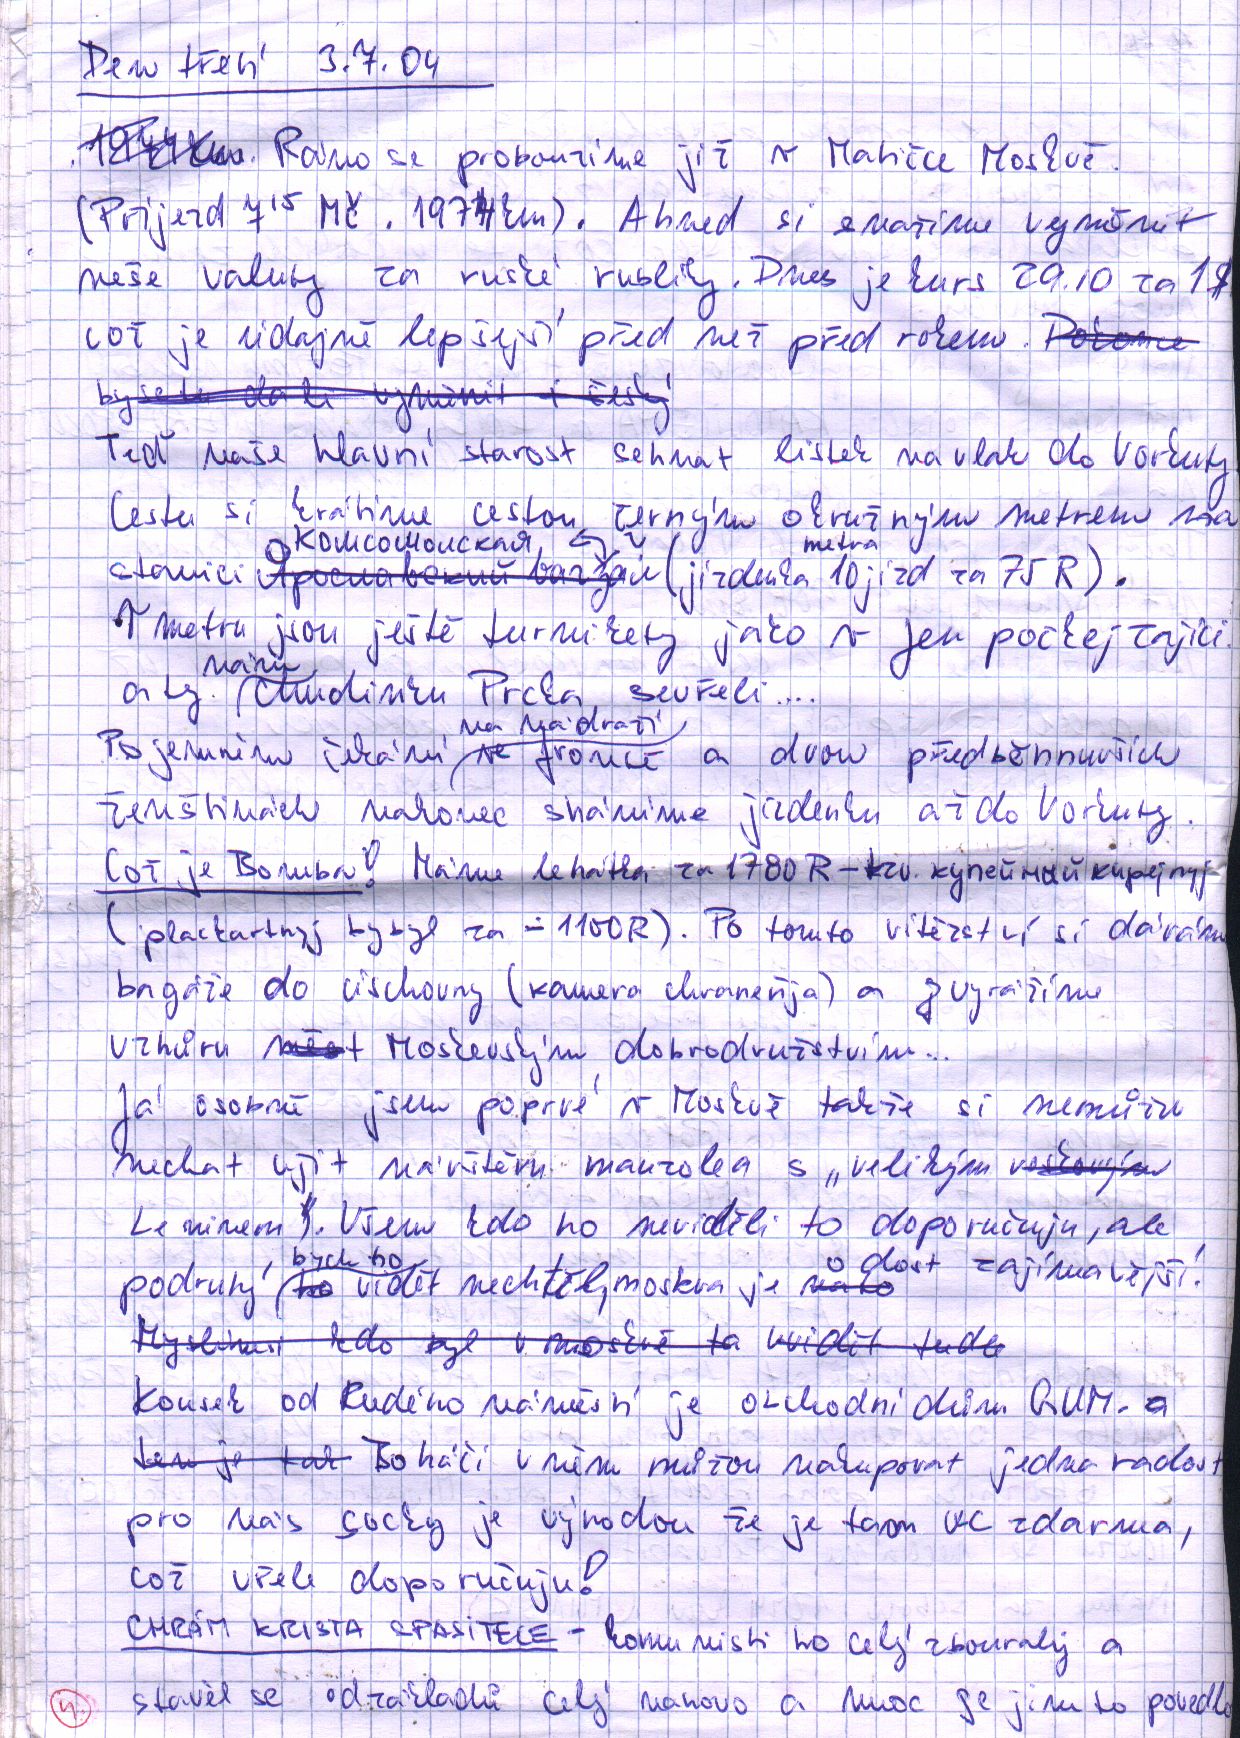 Den třetí 3.7.04
1944 km. Ráno se probouzíme již v Matičce Moskvě.
(Příjezd 7 15 MČ. 1974km). Ahned si snažíme vyměnit
naše valuty za ruské rublíky. Dnes je kurs 29.10 za 1$
což je údajně lepšejší před než před rokem.
by se tu dali vyměnit i český
Teď naše hlavní starost sehnat lístek na vlak do Vorkuty
Cestu si krátíme cestou černým okružným metrem na
Комсомолская
stanici Ярославский вагзал (jízdenka metra 10 jízd za 75 R).
V metru jsou ještě turnikety jako v Jen počkej zajíci.
a ty nám chudinku Prcka sevřeli....
Po jemném čekání na nádraží ve frontě a dvou předběhnuvších
ženštinách nakonec sháníme jízdenku až do Vorkuty.
Což je Bomba! Máme lehátka za 1780 R – tzv. купейный kupejnyj
(plackartnyj by byl za ≐ 1100R). Po tomto vítězství si dáváme
bagáže do úschovny (kamera chraněnija) a vyrážíme
vzhůru Moskevským dobrodružstvím...
Já osobně jsem poprvé v Moskvě takže si nemůžu
nechat ujít návštěvu mauzolea s „velikým voskovým
Leninem". Všem kdo ho neviděli to doporučuju, ale
podruhý bych ho vidět nechtěl, moskva je o dost zajímavější!
Myslim si kdo byl v moskvě ta
Kousek od Rudého náměstí je obchodní dům GUM. a
tam je tak Boháči v něm můžou nakupovat jedna radost
pro nás socky je výhodou že je tam WC zdarma,
což vřele doporučuju!
CHRÁM KRISTA SPASITELE – komunisti ho celý zbouraly a
stavěl se od základů celý nanovo a moc se jim to povedlo
4.